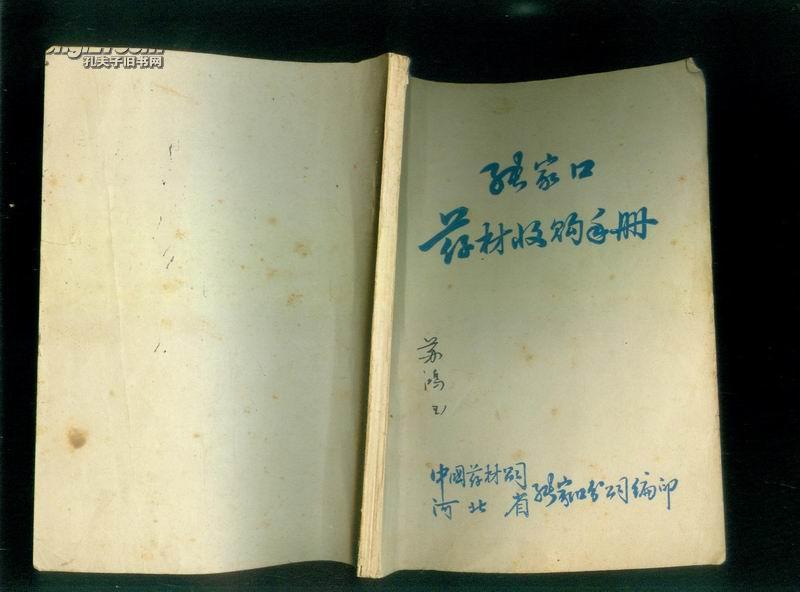 孔夫子旧书网
张家口
药材收购手册
苏鸿玉
中国药材公司
河北省张家口分公司编印